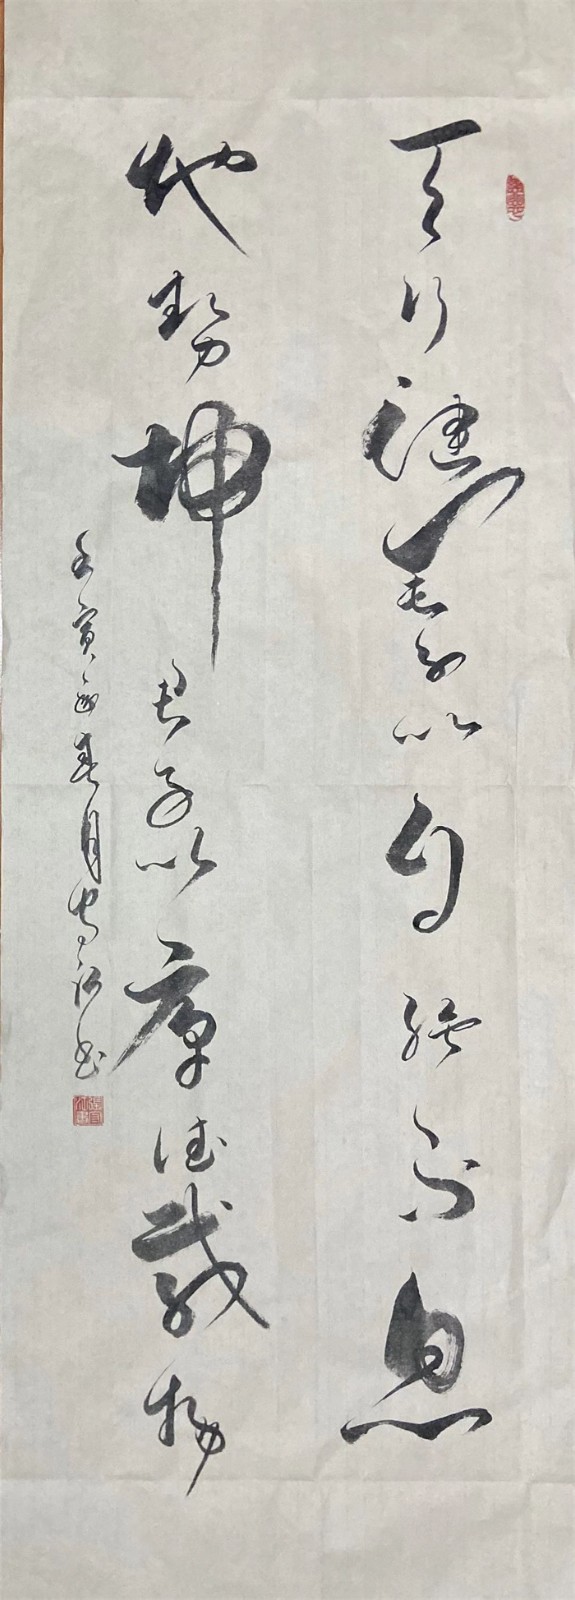 天行健君子以自强不息
地势坤君子以厚德载物
壬寅年春月 书